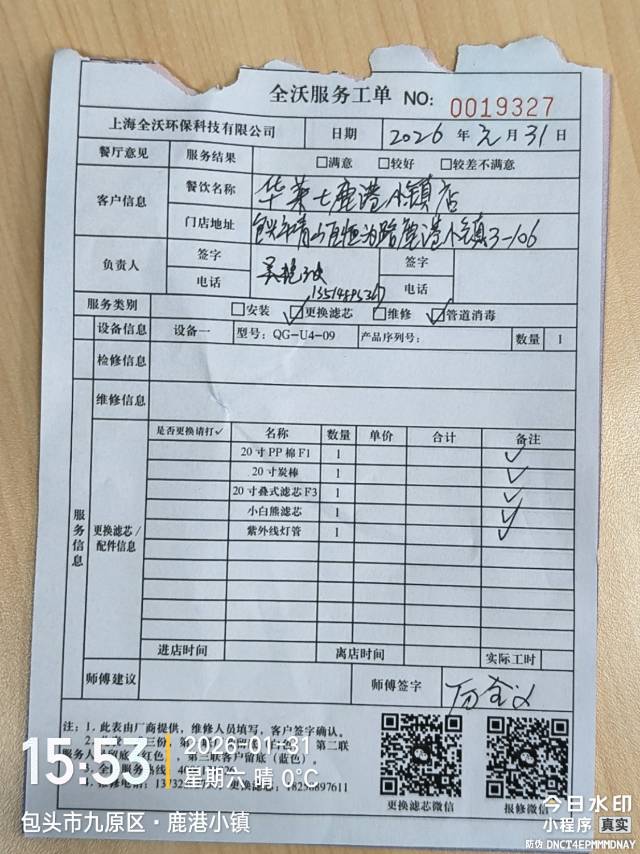 全沃服务工单 NO: 0019327
上海全沃环保科技有限公司 日期 2026 年 元 月 31 日
餐厅意见 服务结果 □满意 □较好 □较差不满意
客户信息 餐饮名称 华莱士鹿港小镇店
门店地址 鹿港小镇3-106
负责人 签字 签字
电话 电话
服务类别 □安装 ☑更换滤芯 □维修 ☑管道消毒
服务信息
设备信息 设备一 型号: QG-U4-09 产品序列号: 数量 1
检修信息
维修信息
更换滤芯/配件信息
是否更换请打✓ 名称 数量 单价 合计 备注
20寸PP棉F1 1 ✓
20寸炭棒 1 ✓
20寸叠式滤芯F3 1 ✓
小白熊滤芯 1 ✓
紫外线灯管 1 ✓
进店时间 离店时间 实际工时
师傅建议 师傅签字
注: 1. 此表由厂商提供, 维修人员填写, 客户签字确认。
第二联
第三联客户留底(蓝色)。
18298897611
更换滤芯微信 报修微信
15:53 2026/01/31
星期六 晴 0℃
包头市九原区·鹿港小镇
今日水印
小程序 真实
防伪 DNCT4EPMMMDNAY